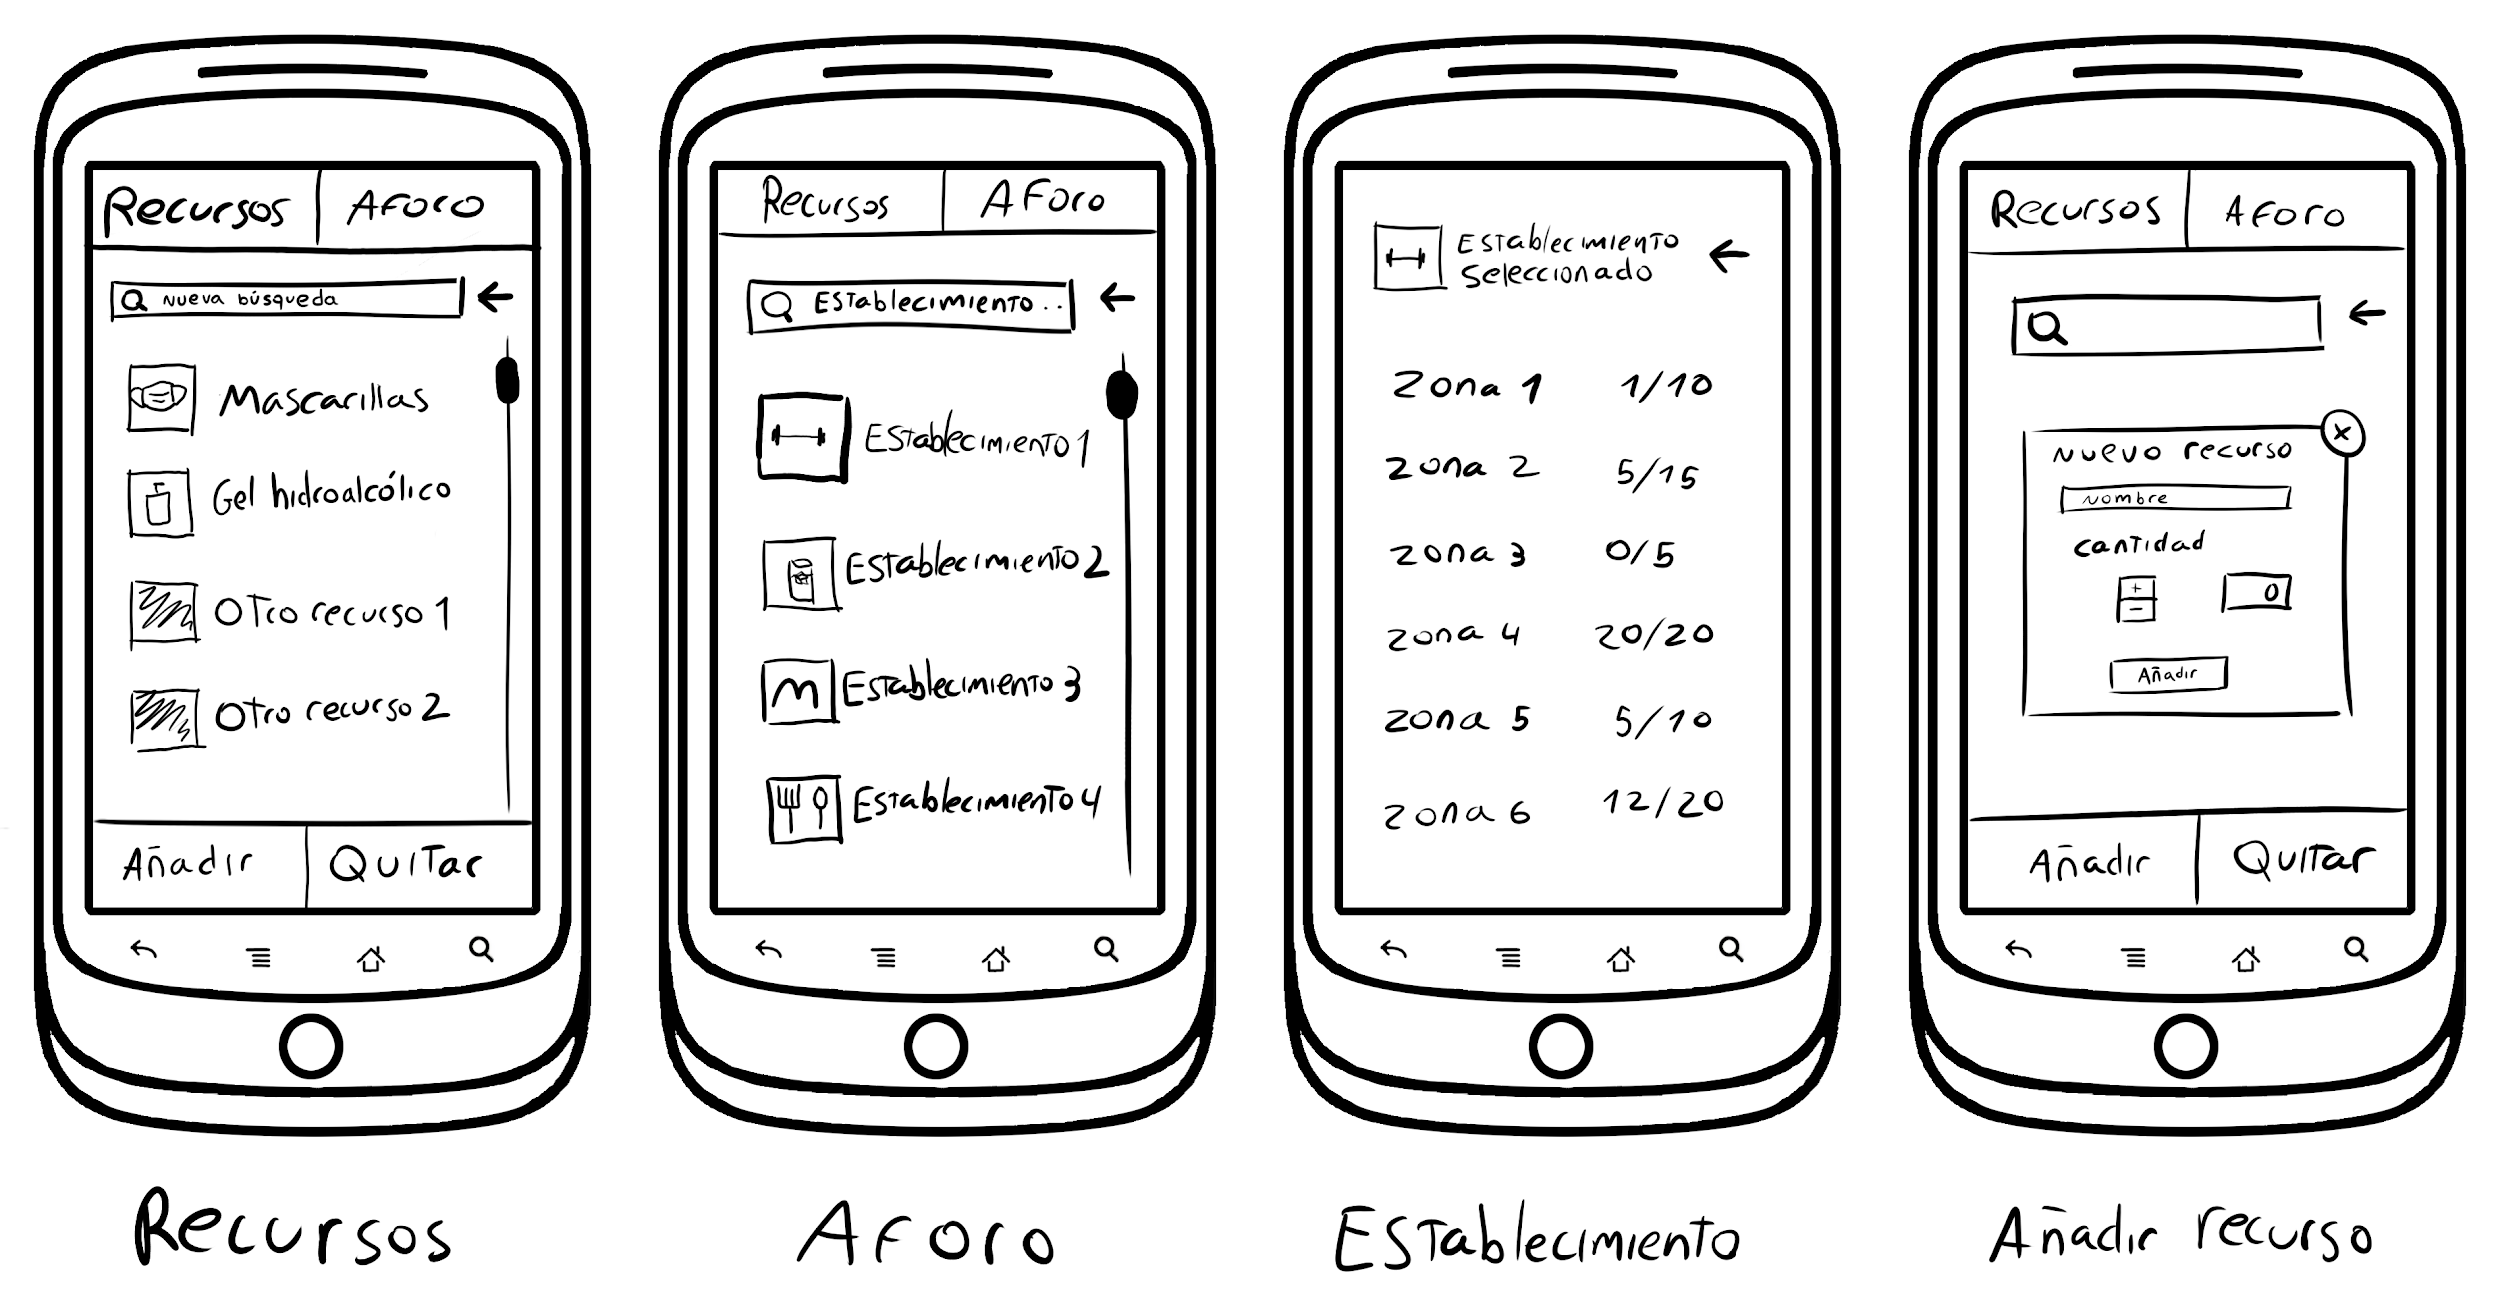 Recursos
Aforo
Nueva búsqueda
Mascarillas
Gel hidroalcólico
Otro recurso 1
Otro recurso 2
Añadir
Quitar
Recursos
Recursos
Aforo
Establecimiento ..
Establecimiento 1
Establecimiento 2
Establecimiento 3
Establecimiento 4
Aforo
Establecimiento
Seleccionado
Zona 1 1/10
Zona 2 5/15
Zona 3 0/5
Zona 4 20/20
Zona 5 5/10
Zona 6 12/20
Establecimiento
Recursos
Aforo
x
Nuevo recurso
Nombre
Cantidad
+
-
0
Añadir
Añadir
Quitar
Añadir recurso